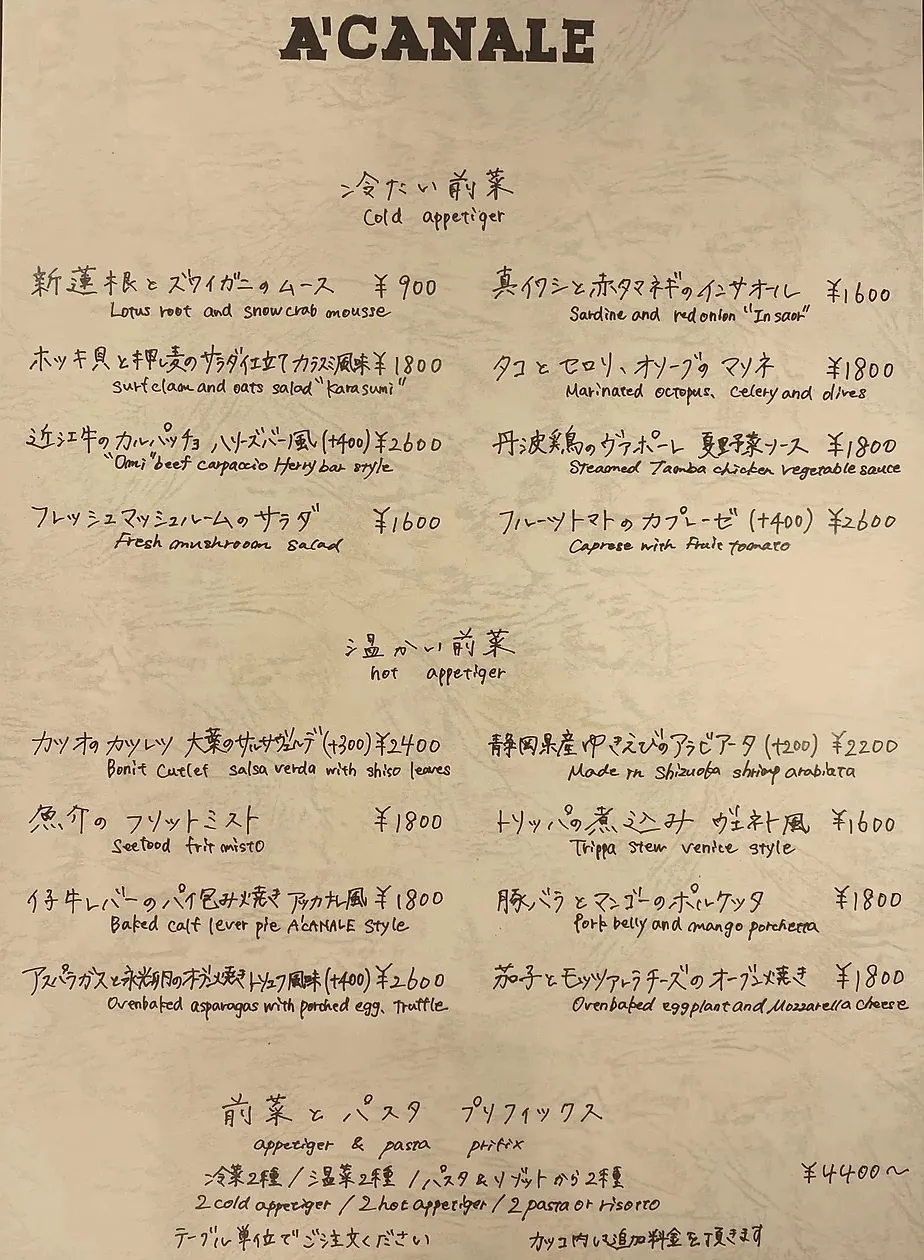 A'CANALE
冷たい前菜
Cold appetiger
新蓮根とズワイガニのムース ¥900
Lotus root and snowcrab mousse
真イワシと赤タマネギのインサオール ¥1600
Sardine and red onion "In saor"
ホッキ貝と押し麦のサラダ仕立てカラスミ風味 ¥1800
surfclam and oats salad "karasumi"
タコとセロリ、オリーブのマリネ ¥1800
Marinated octopus, celery and olives
近江牛のカルパッチョ ハリーズバー風(+400) ¥2600
"Omi" beef carpaccio Herry bar style
丹波鶏のヴァポーレ 夏野菜ソース ¥1800
Steamed Tamba chicken vegetable sauce
フレッシュマッシュルームのサラダ ¥1600
Fresh mushroom salad
フルーツトマトのカプレーゼ(+400) ¥2600
Caprese with fruit tomato
温かい前菜
hot appetiger
カツオのカツレツ 大葉のサルサヴェルデ(+300) ¥2400
Bonit Cutlet salsa verda with shiso leaves
静岡県産ゆきえびのアラビアータ(+200) ¥2200
Made in Shizuoka shrimp arabiata
魚介のフリットミスト ¥1800
Seefood frit misto
トリッパの煮込み ヴェネト風 ¥1600
Trippa stew venice style
仔牛レバーのパイ包み焼き アッカナレ風 ¥1800
Baked calf lever pie A'CANALE style
豚バラとマンゴーのポルケッタ ¥1800
Pork belly and mango porchetta
アスパラガスと 卵のオーブン焼きトリュフ風味(+400) ¥2600
Ovenbaked asparagas with porched egg, Truffle
茄子とモッツァレラチーズのオーブン焼き ¥1800
Ovenbaked eggplant and Mozzarella cheese
前菜とパスタ プリフィックス
appetiger & pasta prifix
冷菜2種/温菜2種/パスタ&リゾットから2種 ¥4400〜
2 cold appetiger / 2 hot appetiger / 2 pasta or risotto
テーブル単位でご注文ください カッコ内は追加料金を頂きます